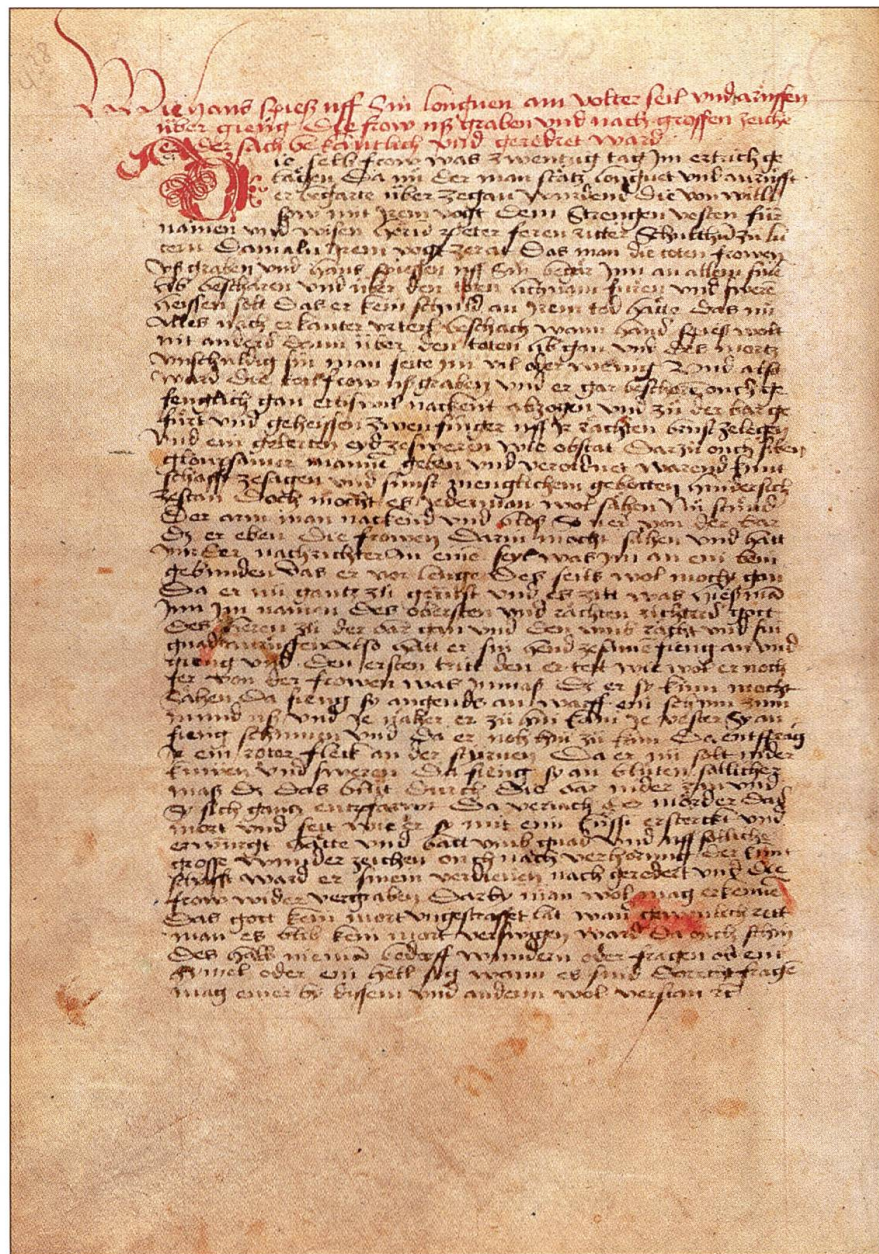 Wie hans spieß uff Sin lougnen am volter seil und anruffen
über gieng Die frow uß graben und nach grossen zeiche
der sach bekantlich und geredret ward
Die selb frow was zwentzig tag Im ertrich ge
lägen Da nu der man stätz lougnet und anrufft
er begarte über ze gan wurdend die von willi
sow mit Irem vogt Dem Strengen vesten für
nämen und wisen herrn peter feren ritter Schulthes zu lu
tern Damaln Irem vogt ze rat Das man die toten frowen
uß graben und hans spiessen uff Sin beger Inn an allem sine
lib bescharen und über den toten lichnam füren und swere
heissen solt Das er kein schuld an Irem tod hätte Das nu
Alles nach erkanter urteil beschach wann hans spieß wolt
nit anders dann über den toten lib gan und des mortz
unschuldig sin man seite im vil oder wenig Und also
ward die frow uß graben und er gar beschorē ouch ge
fenglich gan ettiswil nackent abzogen und zu der bar ge
fürt und geheissen zwen finger uff Ir rächten brust ze legen
und ein gelerten eyd ze sweren wie obstat Dar zu ouch siben
gloupsamer manne geben und verordnet warend kunt
schafft ze sagen und sunst menglichem gebotten hindersich
ze stan Doch mocht es Jederman wol sähen Nu stund
Der arm man nackend und blos So ver von der bar
Dz er eben Die frowen Darin mocht sähen und hatt
Inn der nachrichter An eine seyl was Im an ein bein
gebunden das er vor lenge Des seils wol mocht gan
Da er nu gantz zu gerüst und es zitt was hieß mā
Inn Im namen Des obersten und rächten richters gott
Des herren zu der bar gan und den umb rächt und sin
gnad anrüffen Also hatt er sin hend zesame fieng an und
gieng und den ersten tritt den er tett wie wol er noch
fer von der frowen was Inmaß Dz er sy kum mocht
sähen Da fieng sy angends an warff ein schum zum
mund uß und Je näher er zu hin kam Je vester Sy an
fieng schumen und da er noch hin zu kam Da entsprāg
Ir ein roter fleck an der stirnen Da er nu solt nider
knüwen und sweren Da fieng sy an blüten sölicher
maß Dz das blut Durch Die bar nider ran und
Sy sich gantz entpfarwt Da veriach der mörder Das
mort und seit wie er sy mit eim küssi ersteckt und
erwürgt hätte und batt umb gnad und uff söliche
grosse wunder zeichen ouch nach verhörung der kunt
schafft ward er sinem verdienen nach geredert und die
frow wider vergraben Darby man wol mag erkenne
Das gott kein mort ungestraffet lat wan gewonlich rett
man es blib kein mort verswigen
Des halb nieman bedarff wundern oder fragen ob ein
hymel oder ein hell sig wann es sind
mag einer by disem und andern wol verstan rc